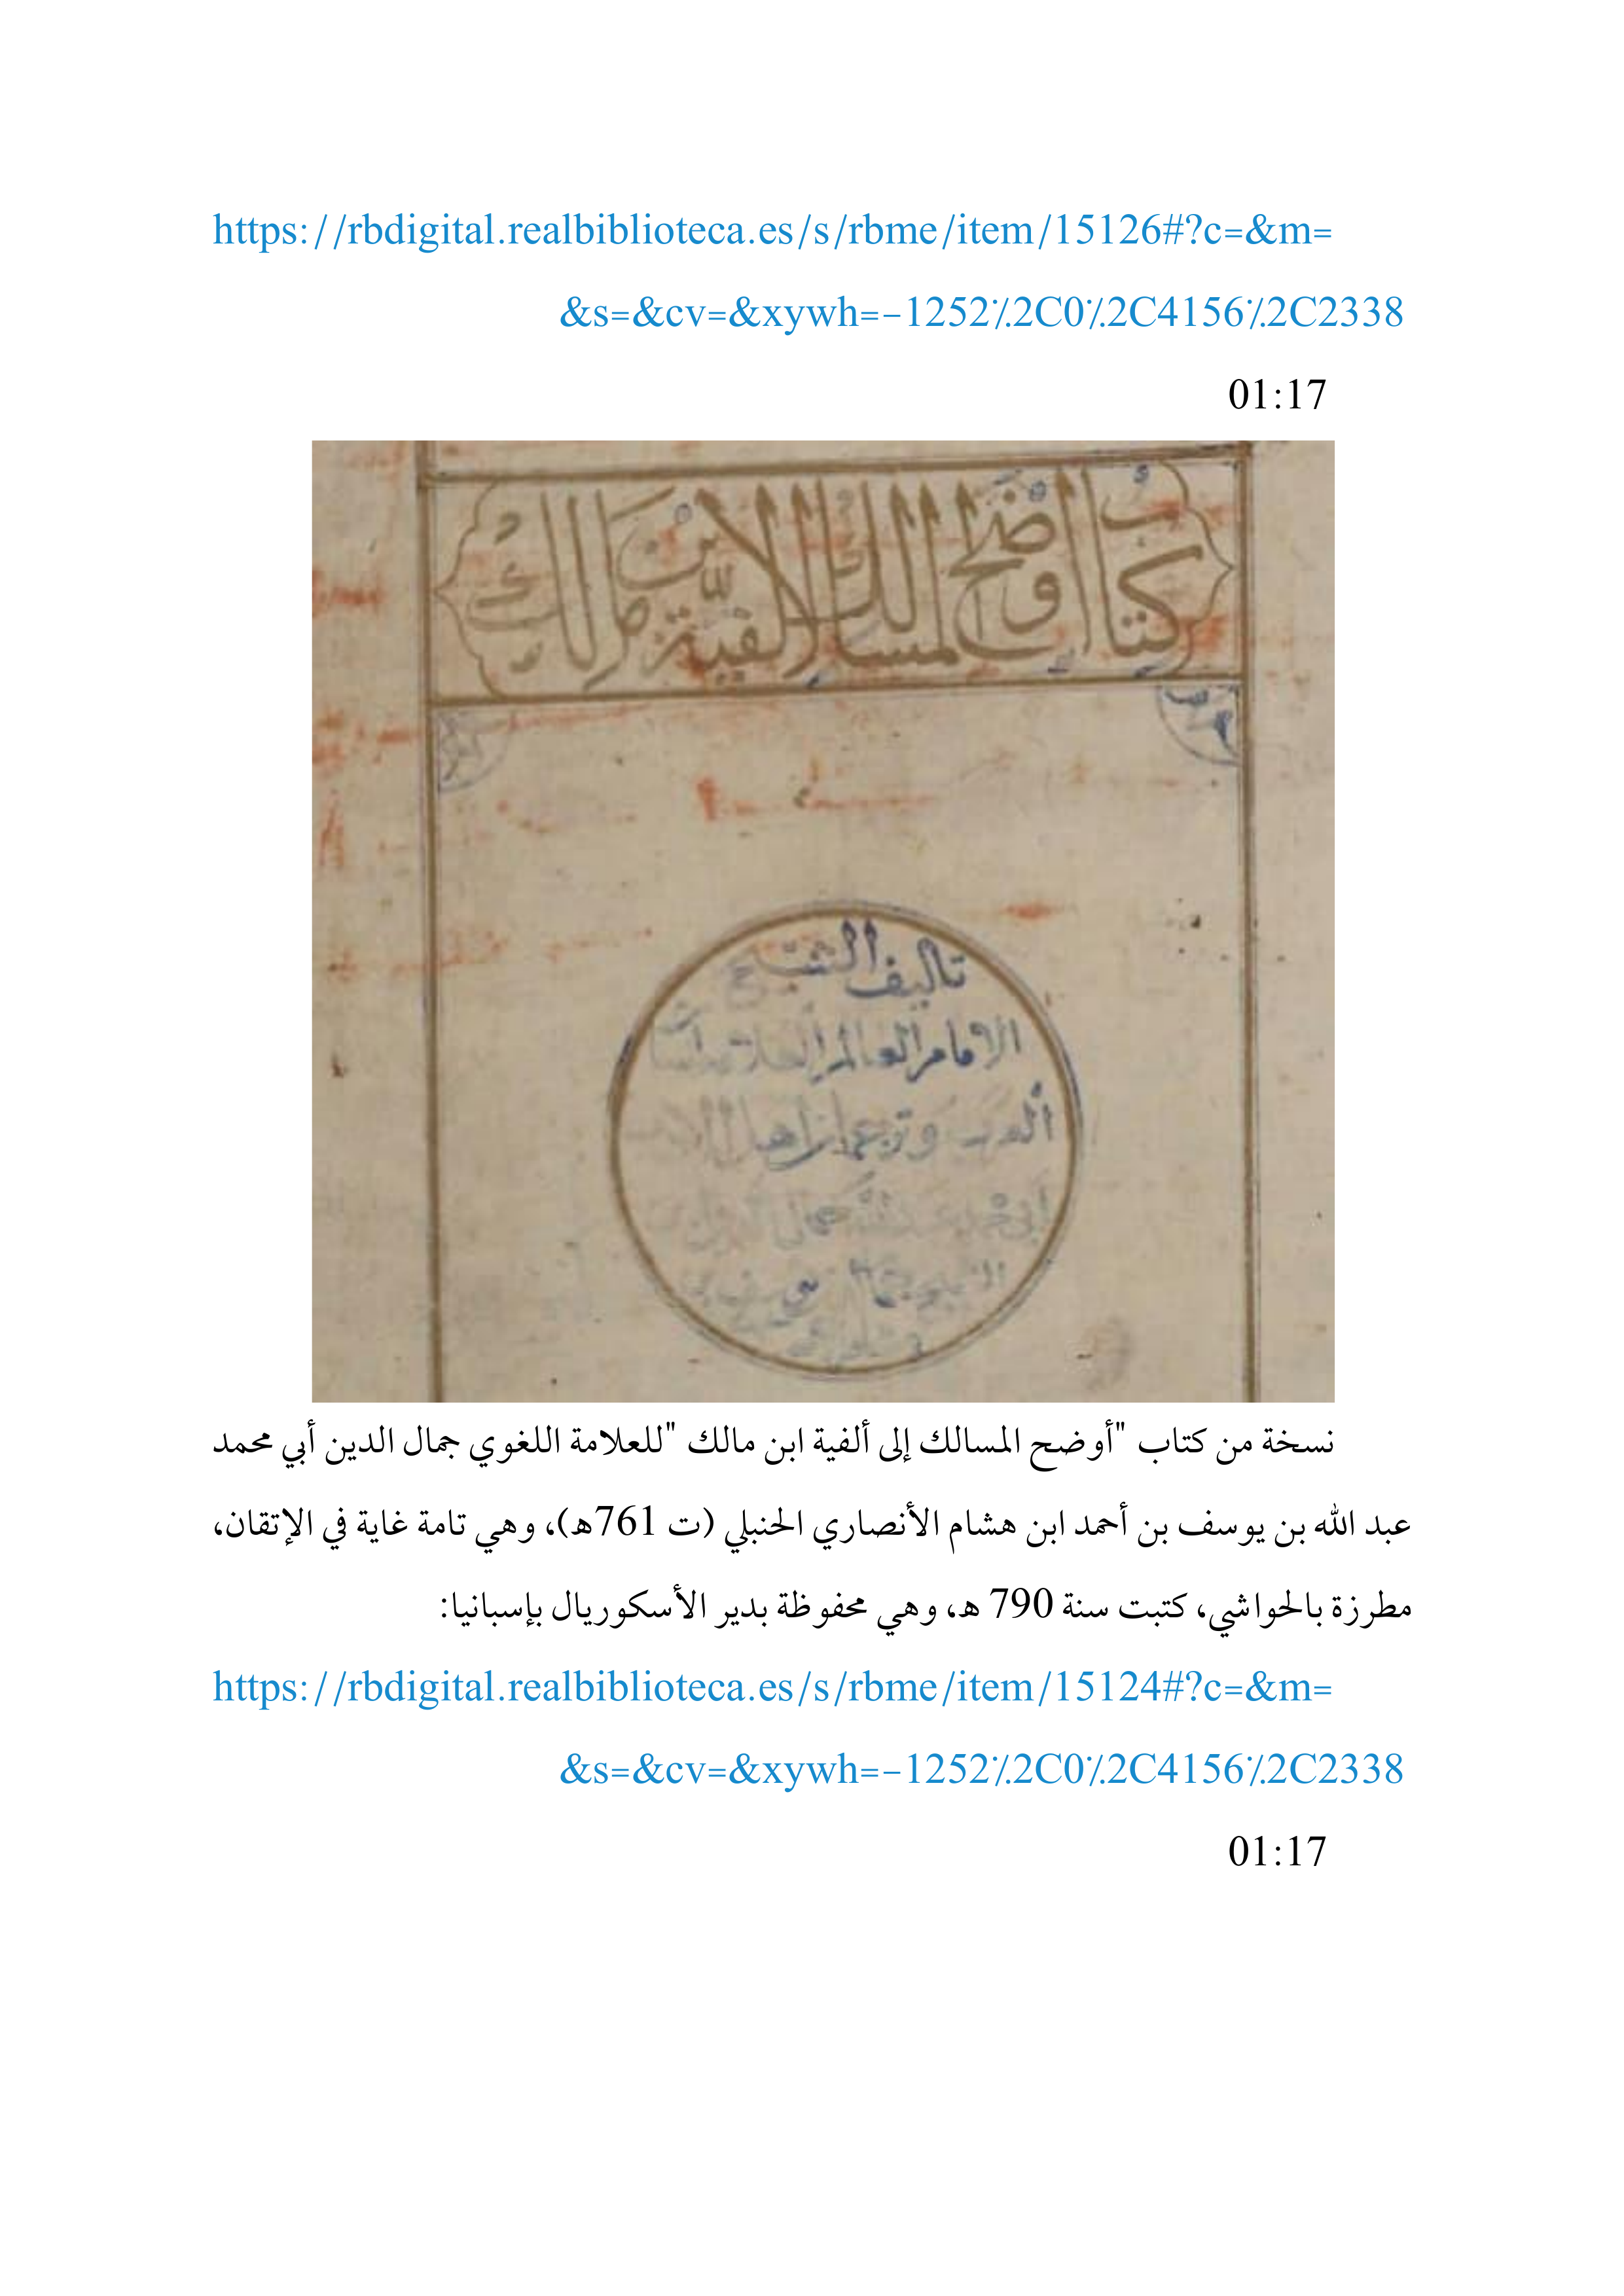 https://rbdigital.realbiblioteca.es/s/rbme/item/15126#?c=&m=
&s=&cv=&xywh=-1252%2C0%2C4156%2C2338
01:17
كتاب أوضح المسالك لالفية ابن مالك
تاليف الشيخ
الامام العالم العلامة لسان
العرب وترجمان اهل الادب
أبي محمد عبد الله جمال الدين
يوسف بن
نسخة من كتاب "أوضح المسالك إلى ألفية ابن مالك "للعلامة اللغوي جمال الدين أبي محمد
عبد الله بن يوسف بن أحمد ابن هشام الأنصاري الحنبلي (ت 761ه)، وهي تامة غاية في الإتقان،
مطرزة بالحواشي، كتبت سنة 790 ه، وهي محفوظة بدير الأسكوريال بإسبانيا:
https://rbdigital.realbiblioteca.es/s/rbme/item/15124#?c=&m=
&s=&cv=&xywh=-1252%2C0%2C4156%2C2338
01:17